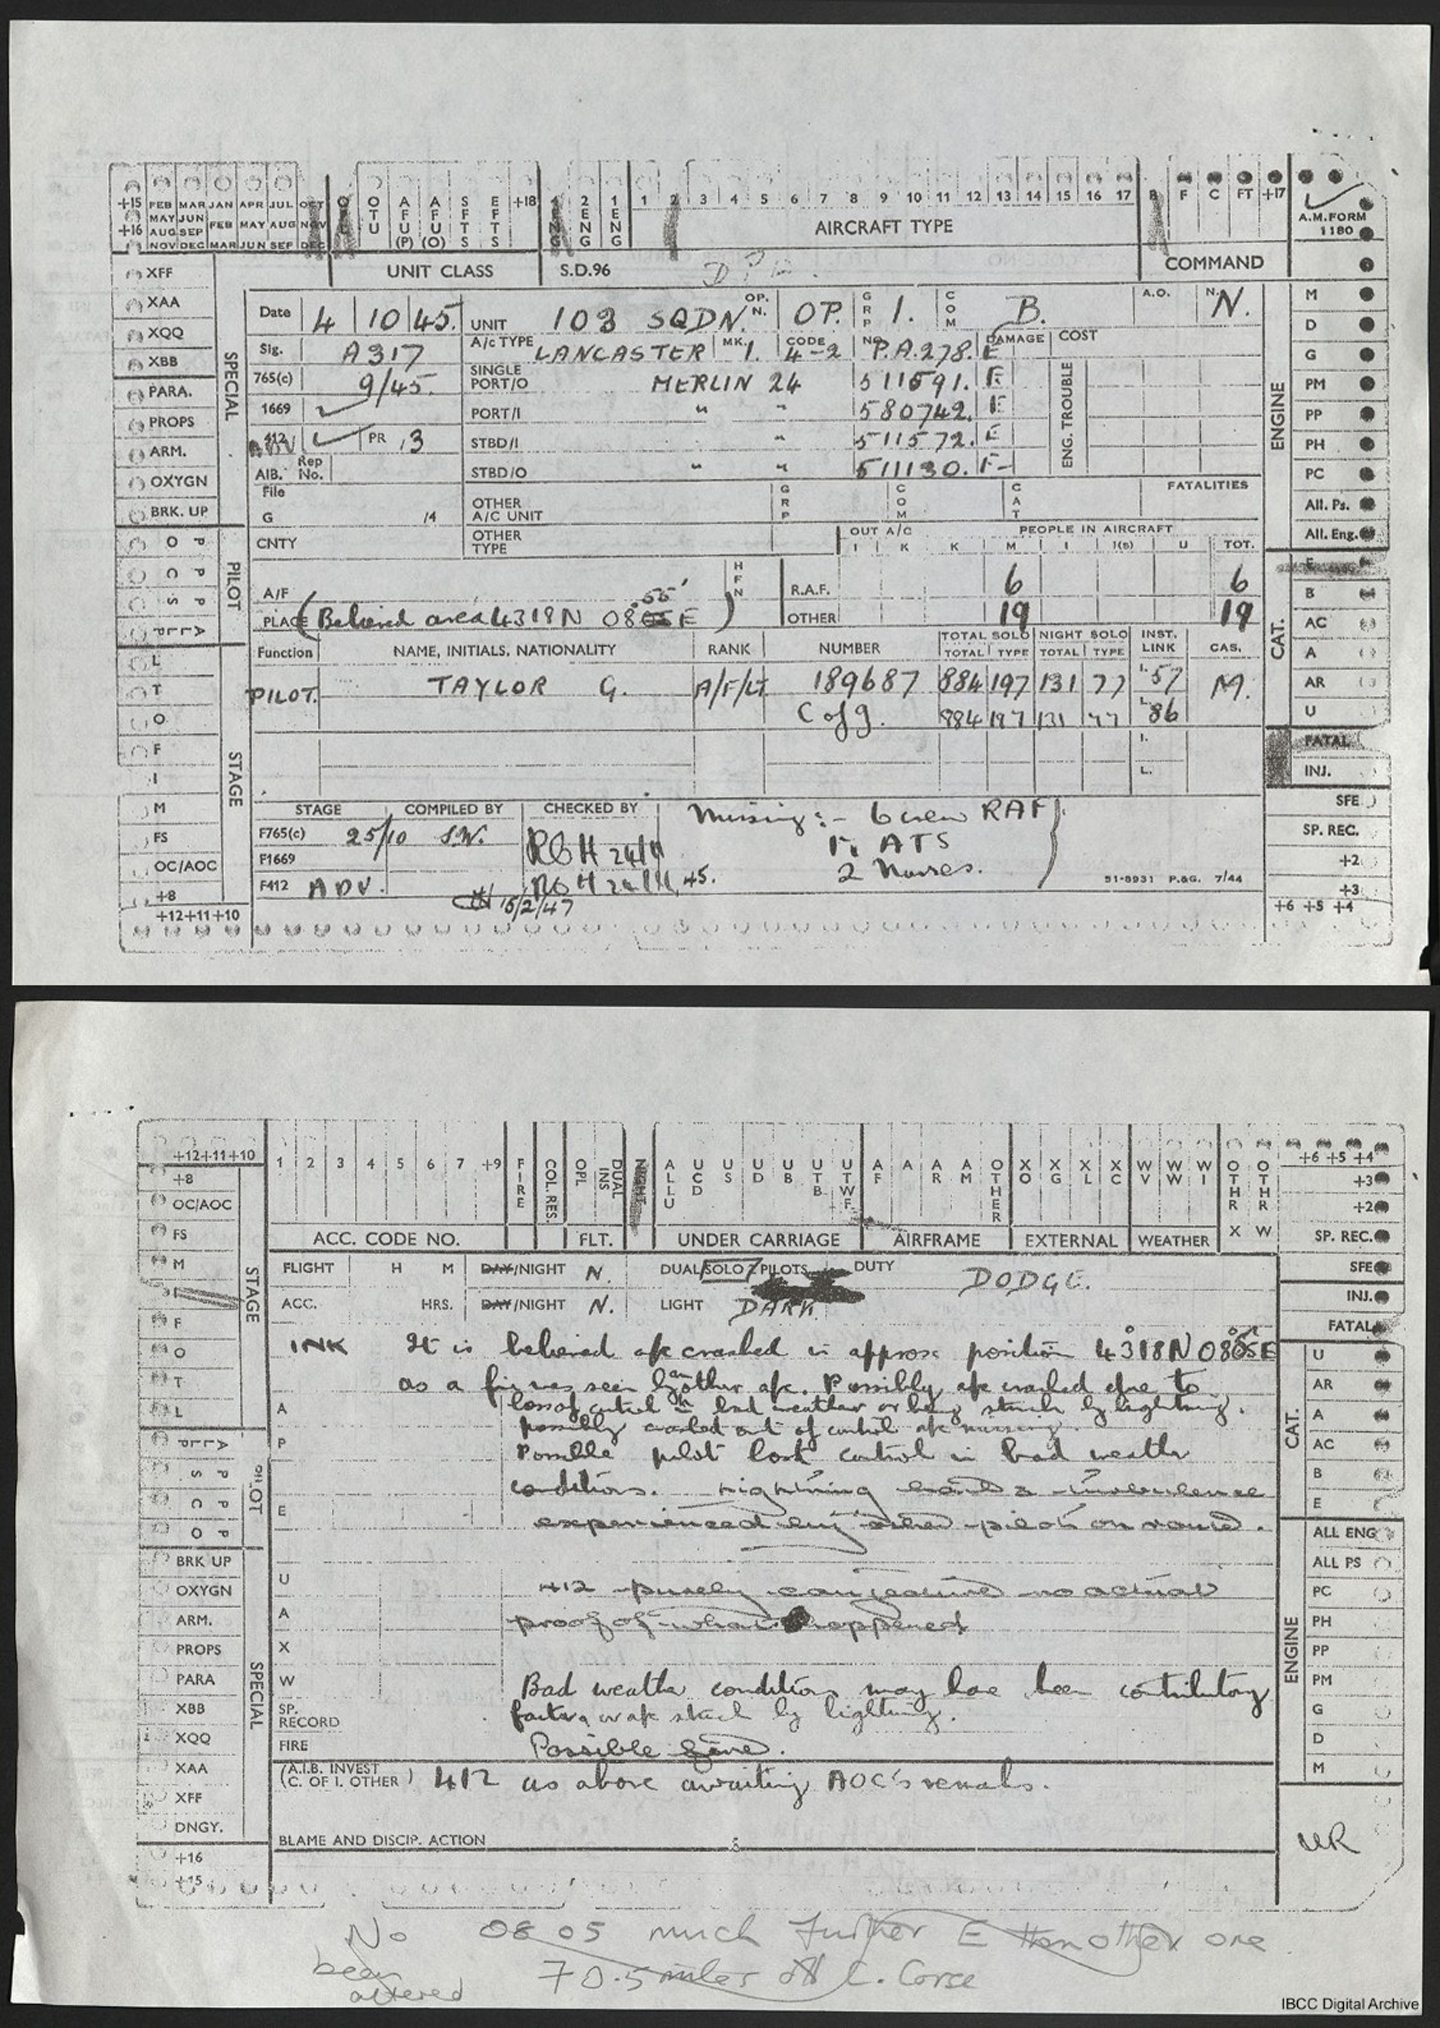 +15 FEB MAR JAN APR JUL OCT
MAY JUN
+16 AUG SEP FEB MAY AUG NOV
NOV DEC MAR JUN SEP DEC
OTU AFU (P) AFU (O) SFTS EFTS +18 4 ENG 2 ENG 1 ENG
1 2 3 4 5 6 7 8 9 10 11 12 13 14 15 16 17
B F C FT +17
A.M. FORM
1180
UNIT CLASS S.D.96 AIRCRAFT TYPE COMMAND
XFF
XAA
XQQ
XBB
PARA.
PROPS
ARM.
OXYGN
BRK. UP
SPECIAL
P O
O C
P S
ALP
PILOT
L
T
O
F
I
M
FS
OC/AOC
+8
STAGE
+12+11+10
Date 4 10 45. UNIT 103 SQDN. OP. N. OP. GRP 1. COM B. A.O. N. N.
Sig. A317 A/c TYPE LANCASTER MK. 1. CODE 4-2 No P.A.278. E DAMAGE COST
765(c) 9/45. SINGLE PORT/O MERLIN 24 511591. E
1669 ✓ PORT/I " " 580742. E
412 ADV ✓ PR 13 STBD/I " 511572. E
AIB. Rep No. STBD/O " " 511130. E
ENG. TROUBLE
File G /4 OTHER A/C UNIT GRP COM CAT FATALITIES
CNTY OTHER TYPE OUT A/C PEOPLE IN AIRCRAFT
I K K M I I(S) U TOT.
A/F HFN R.A.F. 6 6
PLACE (Believed area 4318N 08°55' E) OTHER 19 19
Function NAME, INITIALS, NATIONALITY RANK NUMBER TOTAL SOLO TOTAL TYPE NIGHT SOLO TOTAL TYPE INST. LINK CAS.
PILOT. TAYLOR G. A/F/LT 189687 884 197 131 77 I. 57 M.
C of g. 884 197 131 77 L. 86
I.
L.
STAGE COMPILED BY CHECKED BY
F765(c) 25/10 S.W. RGH
F1669
F412 ADV. RGH 45.
15/2/47
Missing:- 6 crew RAF
ATS
2 Nurses.
51-8931 P.&G. 7/44
M
D
G
PM
PP
PH
PC
All. Ps.
All. Eng.
ENGINE
E
B
AC
A
AR
U
CAT.
FATAL
INJ.
SFE
SP. REC.
+2
+3
+6 +5 +4
+12+11+10
1 2 3 4 5 6 7 +9 FIRE COL. RES. OPL DUAL INS NIGHT
ALLU UCD US UD UB UTB UTWF AF A AR AM OTHER XO XG XL XC WV WW WI OTHR X OTHR W
+6 +5 +4
ACC. CODE NO. FLT. UNDER CARRIAGE AIRFRAME EXTERNAL WEATHER
+8
OC/AOC
FS
M
I
F
O
T
L
STAGE
ALP
P S
O C
P O
PILOT
BRK UP
OXYGN
ARM.
PROPS
PARA
XBB
XQQ
XAA
XFF
DNGY.
SPECIAL
+16
+15
FLIGHT H M DAY/NIGHT N. DUAL SOLO 2 PILOTS DUTY DODGE.
ACC. HRS. DAY/NIGHT N. LIGHT DARK
INK It is believed a/c crashed in approx position 43°18N 08°05E
as a fire was seen by another a/c. Possibly a/c crashed due to
A loss of control in bad weather or being struck by lightning.
possibly crashed out of control a/c missing.
P Possible pilot lost control in bad weather
conditions. Lightning hail & turbulence
E experienced by other pilots on route.
U 412 purely conjecture no actual
A proof of what happened
X
W Bad weather conditions may have been contributory
SP. RECORD factor, or a/c struck by lightning.
FIRE Possible
(A.I.B. INVEST C. OF I. OTHER) 412 as above awaiting AOC's remarks.
BLAME AND DISCIP. ACTION
+3
+2
SP. REC.
SFE
INJ.
FATAL
U
AR
A
AC
B
E
CAT.
ALL ENG
ALL PS
PC
PH
PP
PM
G
D
M
ENGINE
UR
No 08 05 much further E than other one
been altered 70.5 miles off C. Corse
IBCC Digital Archive